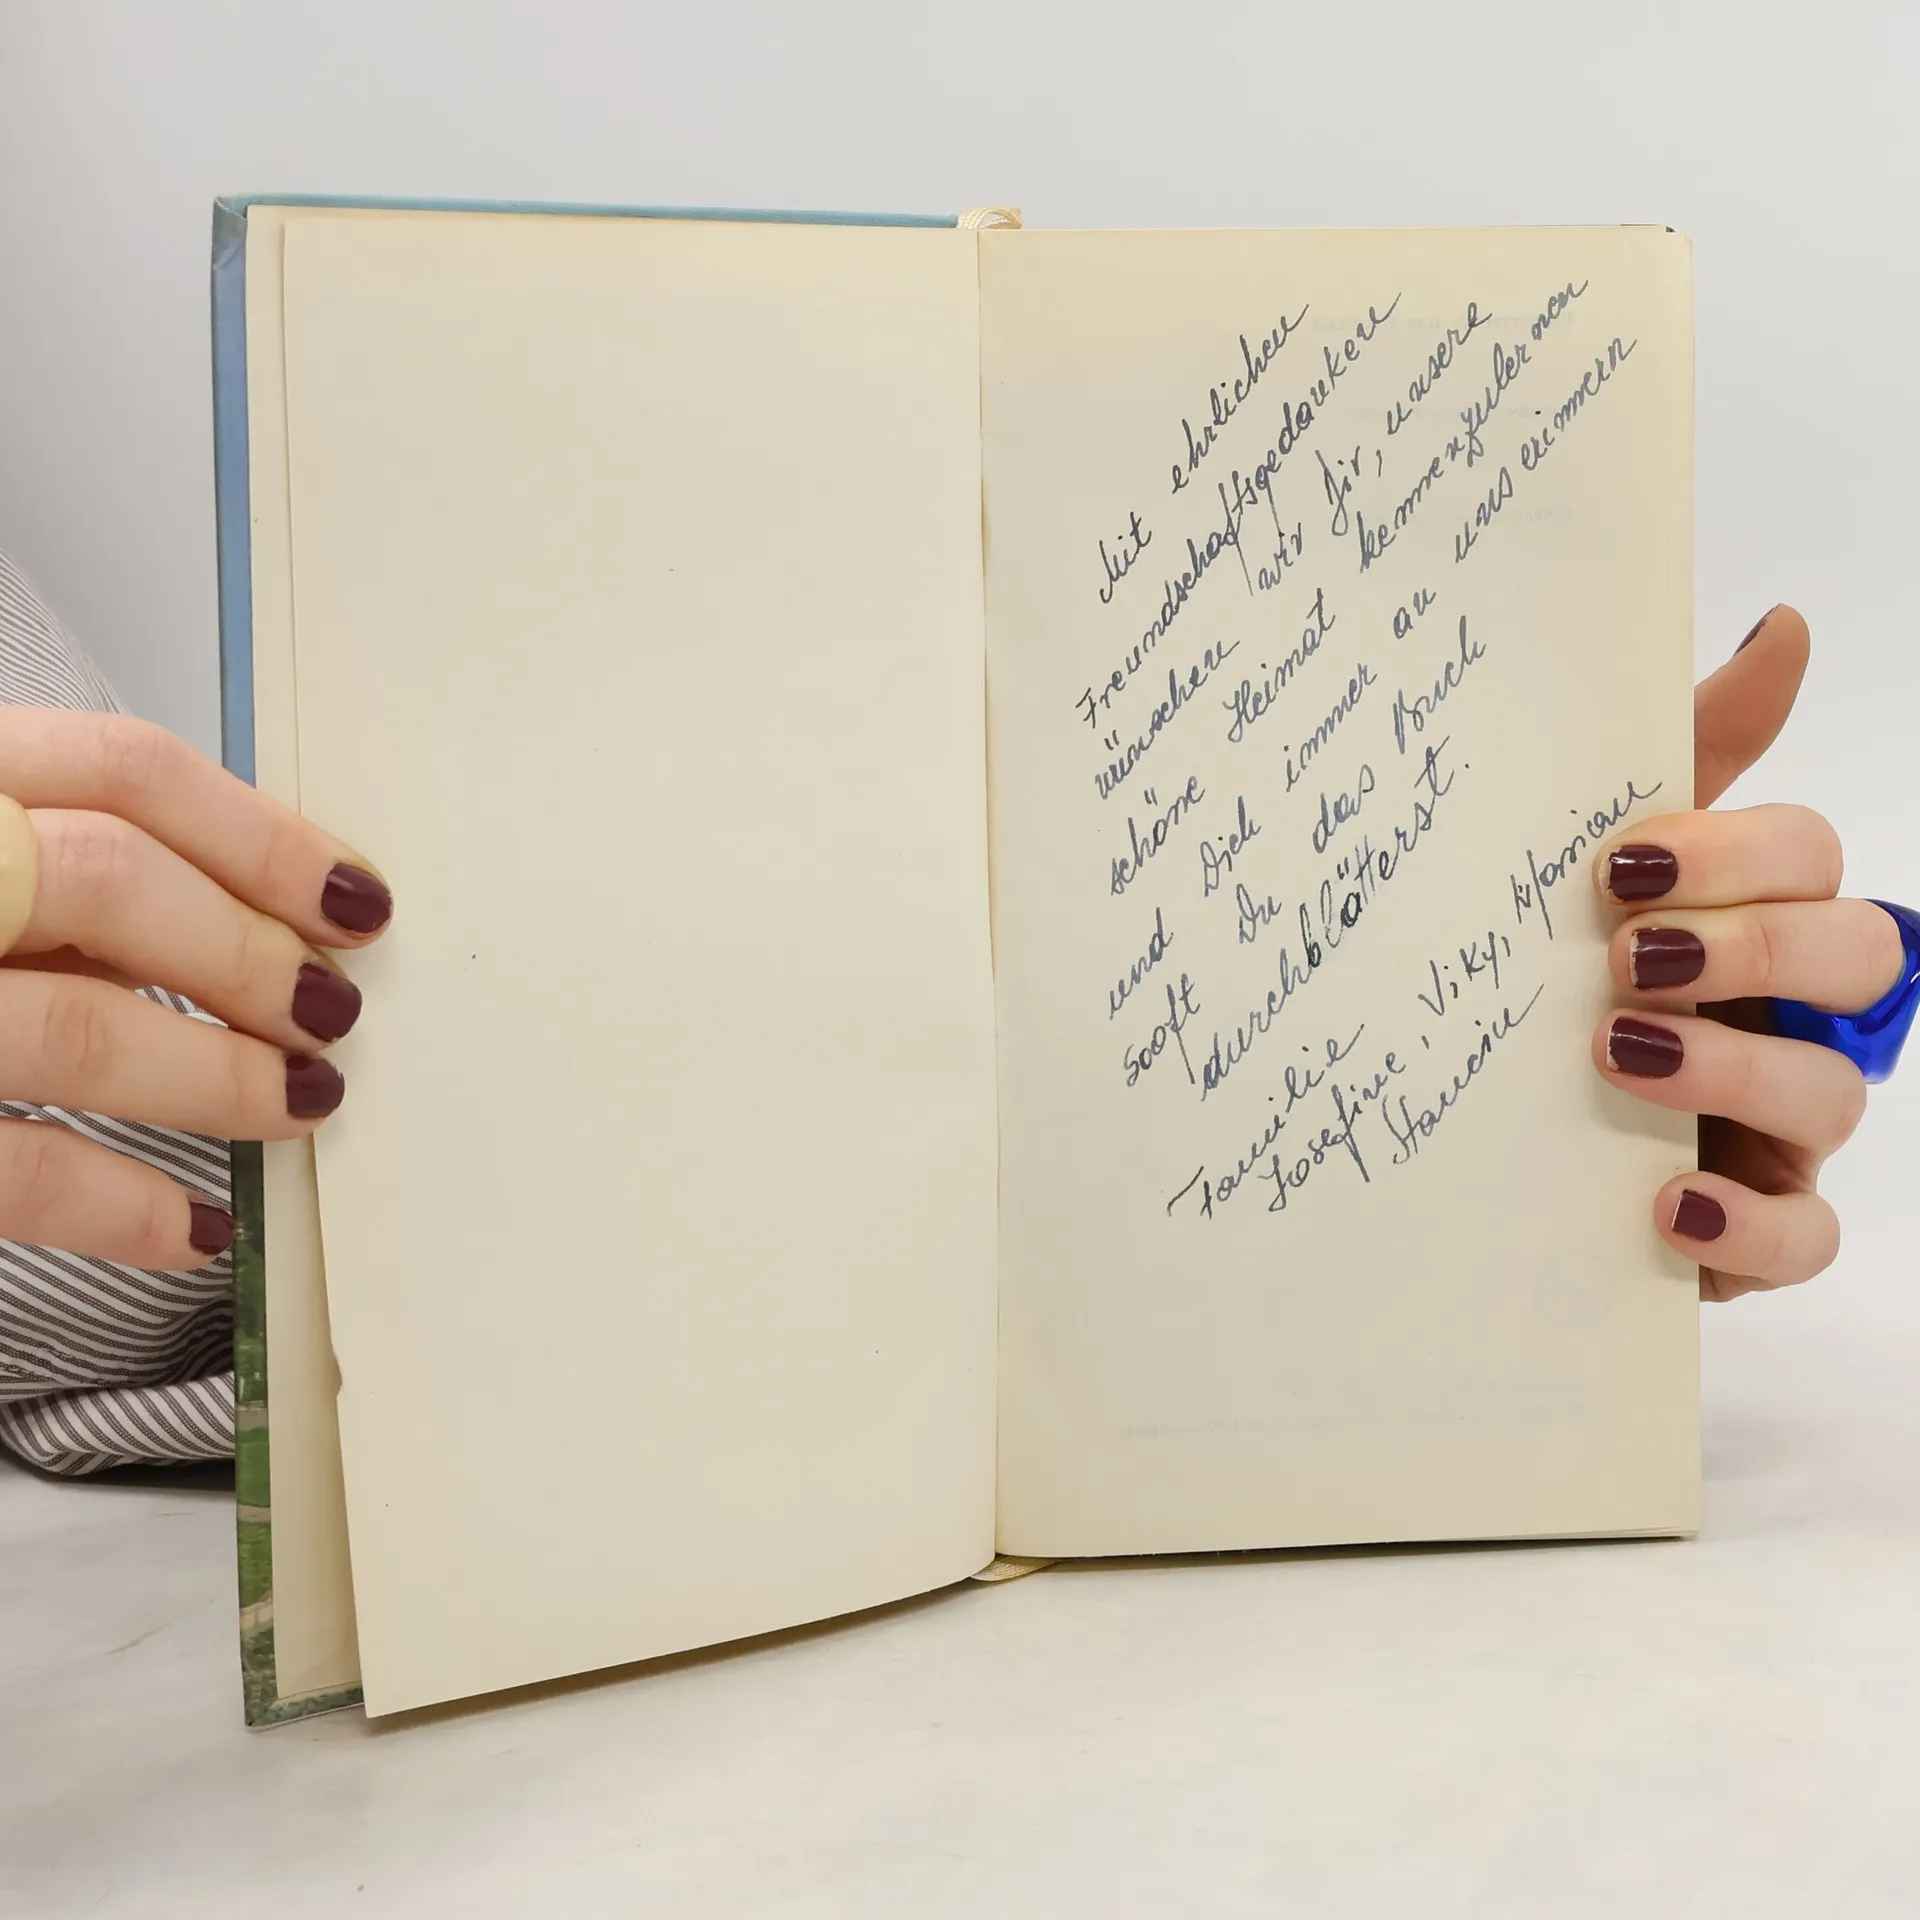 Mit ehrlichen
Freundschaftsgedanken
wünschen wir Dir, unsere
schöne Heimat kennenzulernen
und Dich immer an uns erinnern
sooft Du das Buch
durchblätterst.
Familie
Josefine, Viky, Marian
Stanciu